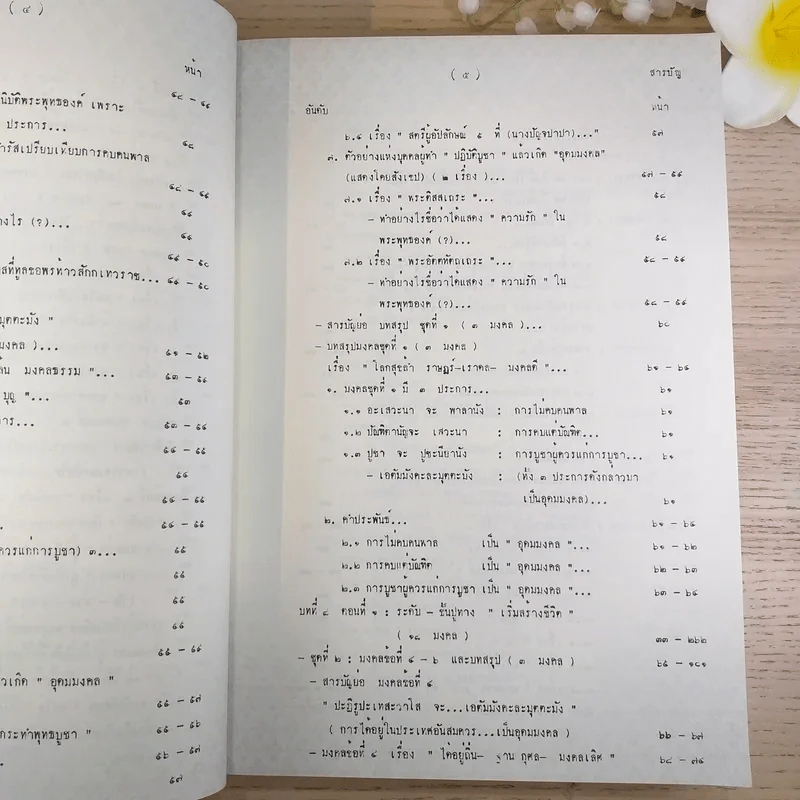 ( ๔ )
หน้า
นิบัติพระพุทธองค์ เพราะ
๔๘ - ๔๙
ประการ...
๔๘
ารัสเปรียบเทียบการคบคนพาล
๔๘ - ๔๙
๔๙
งไร (?)...
๔๙
๔๙ - ๕๐
สที่ทูลขอพรท้าวสักกเทวราช... ๔๙ - ๕๐
มุตตะมัง "
มงคล )...
๕๑ - ๕๒
น มงคลธรรม "...
๕๓ - ๕๕
บุญ "...
๕๓
การ...
๕๓ - ๕๔
๕๔ - ๕๕
๕๔
๕๔ - ๕๕
๕๔ - ๕๕
ควรแก่การบูชา) ๓...
๕๕
๕๕
๕๕
๕๕
๕๕ - ๕๙
วเกิด " อุดมมงคล "
๕๕ - ๕๗
กระทำพุทธบูชา "
๕๕ - ๕๖
๕๖ - ๕๗
๕๗
( ๕ )
สารบัญ
อันดับ
หน้า
๖.๔ เรื่อง " สตรีผู้อัปลักษณ์ ๕ ที่ (นางปัญจปาปา)..." ๕๗
๗. ตัวอย่างแห่งบุคคลผู้ทำ " ปฏิบัติบูชา " แล้วเกิด "อุดมมงคล"
(แสดงโดยสังเขป) ( ๒ เรื่อง )... ๕๗ - ๕๙
๗.๑ เรื่อง " พระติสสเถระ "... ๕๘
- ทำอย่างไรชื่อว่าได้แสดง " ความรัก " ใน
พระพุทธองค์ (?)... ๕๘
๗.๒ เรื่อง " พระอัตตทัตถเถระ "... ๕๘ - ๕๙
- ทำอย่างไรชื่อว่าได้แสดง " ความรัก " ใน
พระพุทธองค์ (?)... ๕๘ - ๕๙
- สารบัญย่อ บทสรุป ชุดที่ ๑ ( ๓ มงคล )... ๖๐
- บทสรุปมงคลชุดที่ ๑ ( ๓ มงคล )
เรื่อง " โลกสุขล้ำ ราษฎร์-เราคล- มงคลดี "... ๖๑ - ๖๔
๑. มงคลชุดที่ ๑ มี ๓ ประการ... ๖๑
๑.๑ อะเสวะนา จะ พาลานัง : การไม่คบคนพาล ๖๑
๑.๒ ปัณฑิตานัญจะ เสวะนา : การคบแต่บัณฑิต... ๖๑
๑.๓ ปูชา จะ ปูชะนียานัง : การบูชาผู้ควรแก่การบูชา... ๖๑
- เอตัมมังคะละมุตตะมัง : (ทั้ง ๓ ประการดังกล่าวมา
เป็นอุดมมงคล)... ๖๑
๒. คำประพันธ์... ๖๑ - ๖๔
๒.๑ การไม่คบคนพาล เป็น " อุดมมงคล "... ๖๑ - ๖๒
๒.๒ การคบแต่บัณฑิต เป็น " อุดมมงคล "... ๖๒ - ๖๓
๒.๓ การบูชาผู้ควรแก่การบูชา เป็น " อุดมมงคล "... ๖๓ - ๖๔
บทที่ ๘ ตอนที่ ๑ : ระดับ - ขั้นปูทาง " เริ่มสร้างชีวิต "
( ๑๘ มงคล ) ๓๓ - ๒๖๒
- ชุดที่ ๒ : มงคลข้อที่ ๔ - ๖ และบทสรุป ( ๓ มงคล ) ๖๕ - ๑๐๑
- สารบัญย่อ มงคลข้อที่ ๔
" ปะฏิรูปะเทสะวาโส จะ...เอตัมมังคะละมุตตะมัง "
( การได้อยู่ในประเทศอันสมควร...เป็นอุดมมงคล ) ๖๖ - ๖๗
- มงคลข้อที่ ๔ เรื่อง " ได้อยู่ถิ่น- ฐาน กุศล- มงคลเลิศ " ๖๘ - ๗๔